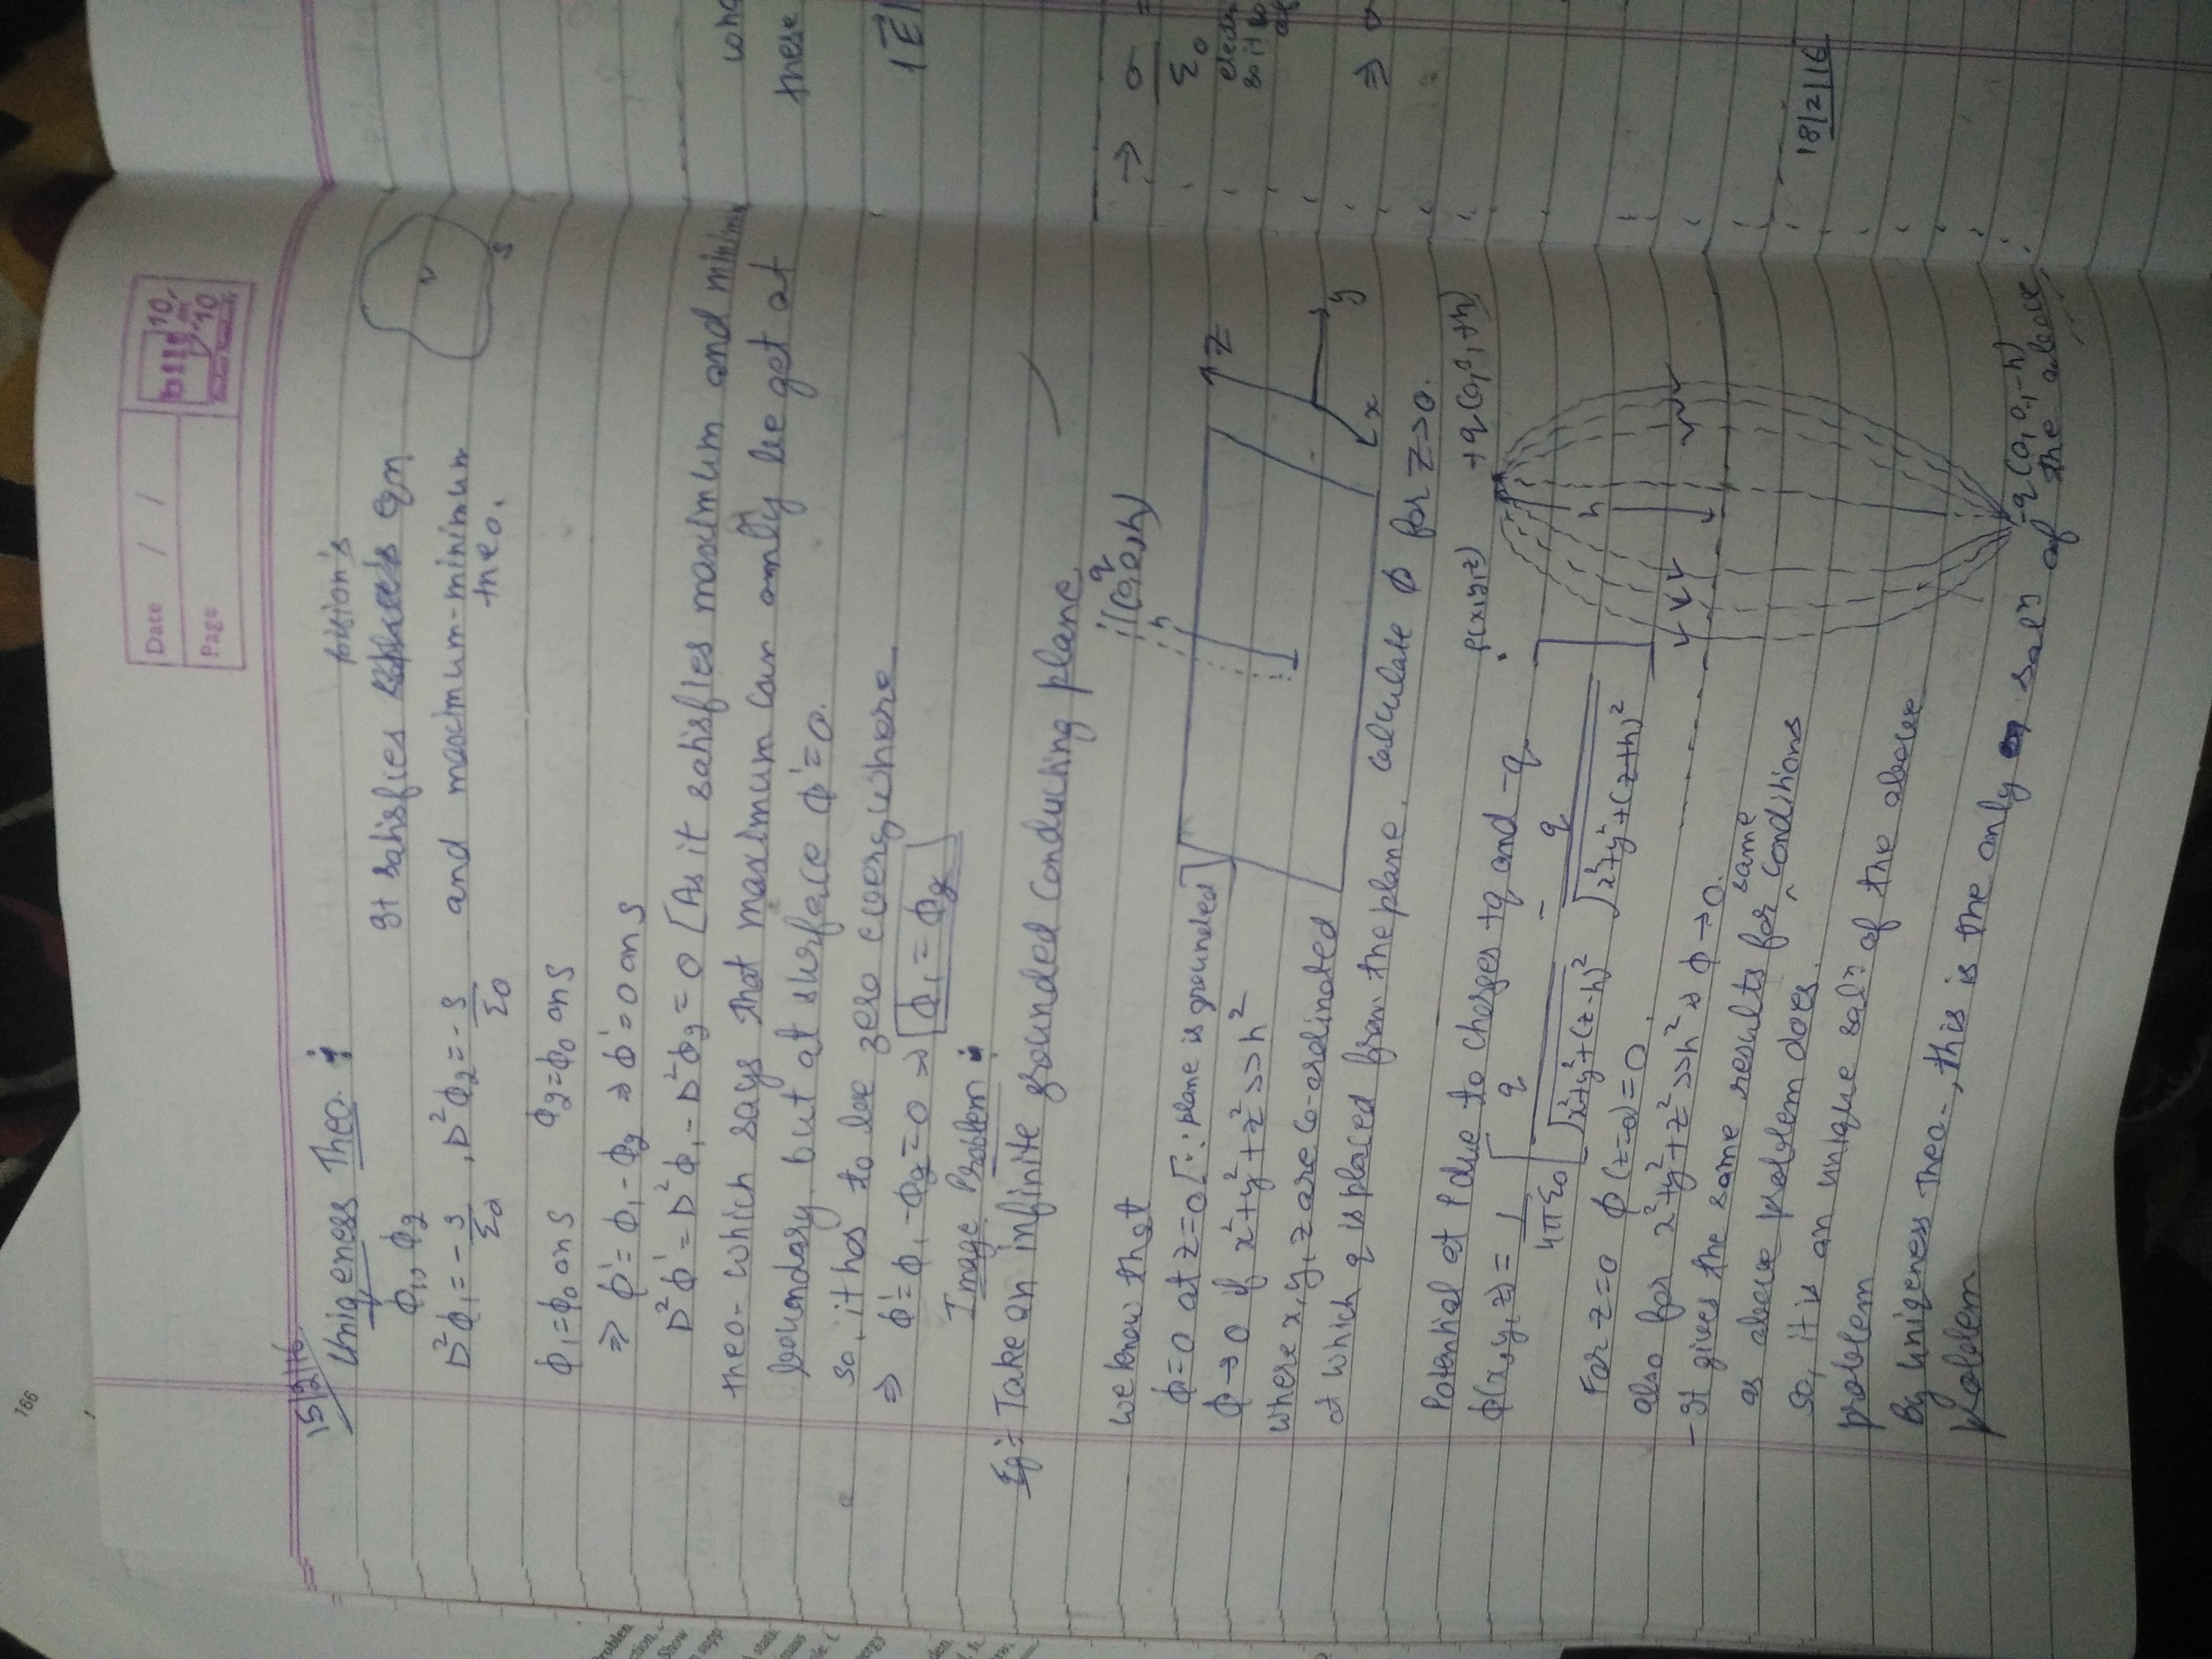 166
Date / /
Page
bilt 10 on 10
Student Notebooks
15/2/16
Uniqeness Theo. :
ϕ₁, ϕ₂
It satisfies poision's eqn
D²ϕ₁ = -ρ/ε₀ , D²ϕ₂ = -ρ/ε₀ and maximum-minimum theo.
V
S
ϕ₁=ϕ₀ on S ϕ₂=ϕ₀ on S
⇒ ϕ' = ϕ₁ - ϕ₂ ⇒ ϕ' = 0 on S
D²ϕ' = D²ϕ₁ - D²ϕ₂ = 0 [As it satisfies maximum and minimum
theo- which says that maximum can only be get at
boundary. but at surface ϕ'=0.
so, it has to be zero everywhere
⇒ ϕ' = ϕ₁ - ϕ₂ = 0 ⇒ [ϕ₁ = ϕ₂]
Image Problem :
Eg:- Take an infinite grounded conducting plane
q
(0,0,h)
h
we know that
ϕ=0 at z=0 [∵ plane is grounded]
ϕ→0 if x²+y²+z²>>h²
where x, y, z are co-ordinated
at which q is placed from the plane. calculate ϕ for z>0.
z
y
x
Potential at P due to charges +q and -q
P(x,y,z) +q(0,0,+h)
ϕ(x,y,z) = 1/4πε₀ [q/√x²+y²+(z-h)² - q/√x²+y²+(z+h)²]
h
For z=0 ϕ(z=0)=0.
also for x²+y²+z²>>h² ⇒ ϕ→0.
- It gives the same results for same conditions
as above problem does.
so, it is an unique solⁿ of the above
problem
By uniqeness Theo-, this is the only solⁿ of the above
problem
-q(0,0,-h)
these
|E⃗|
→ σ/ε₀ =
⇒ σ
18/2/16